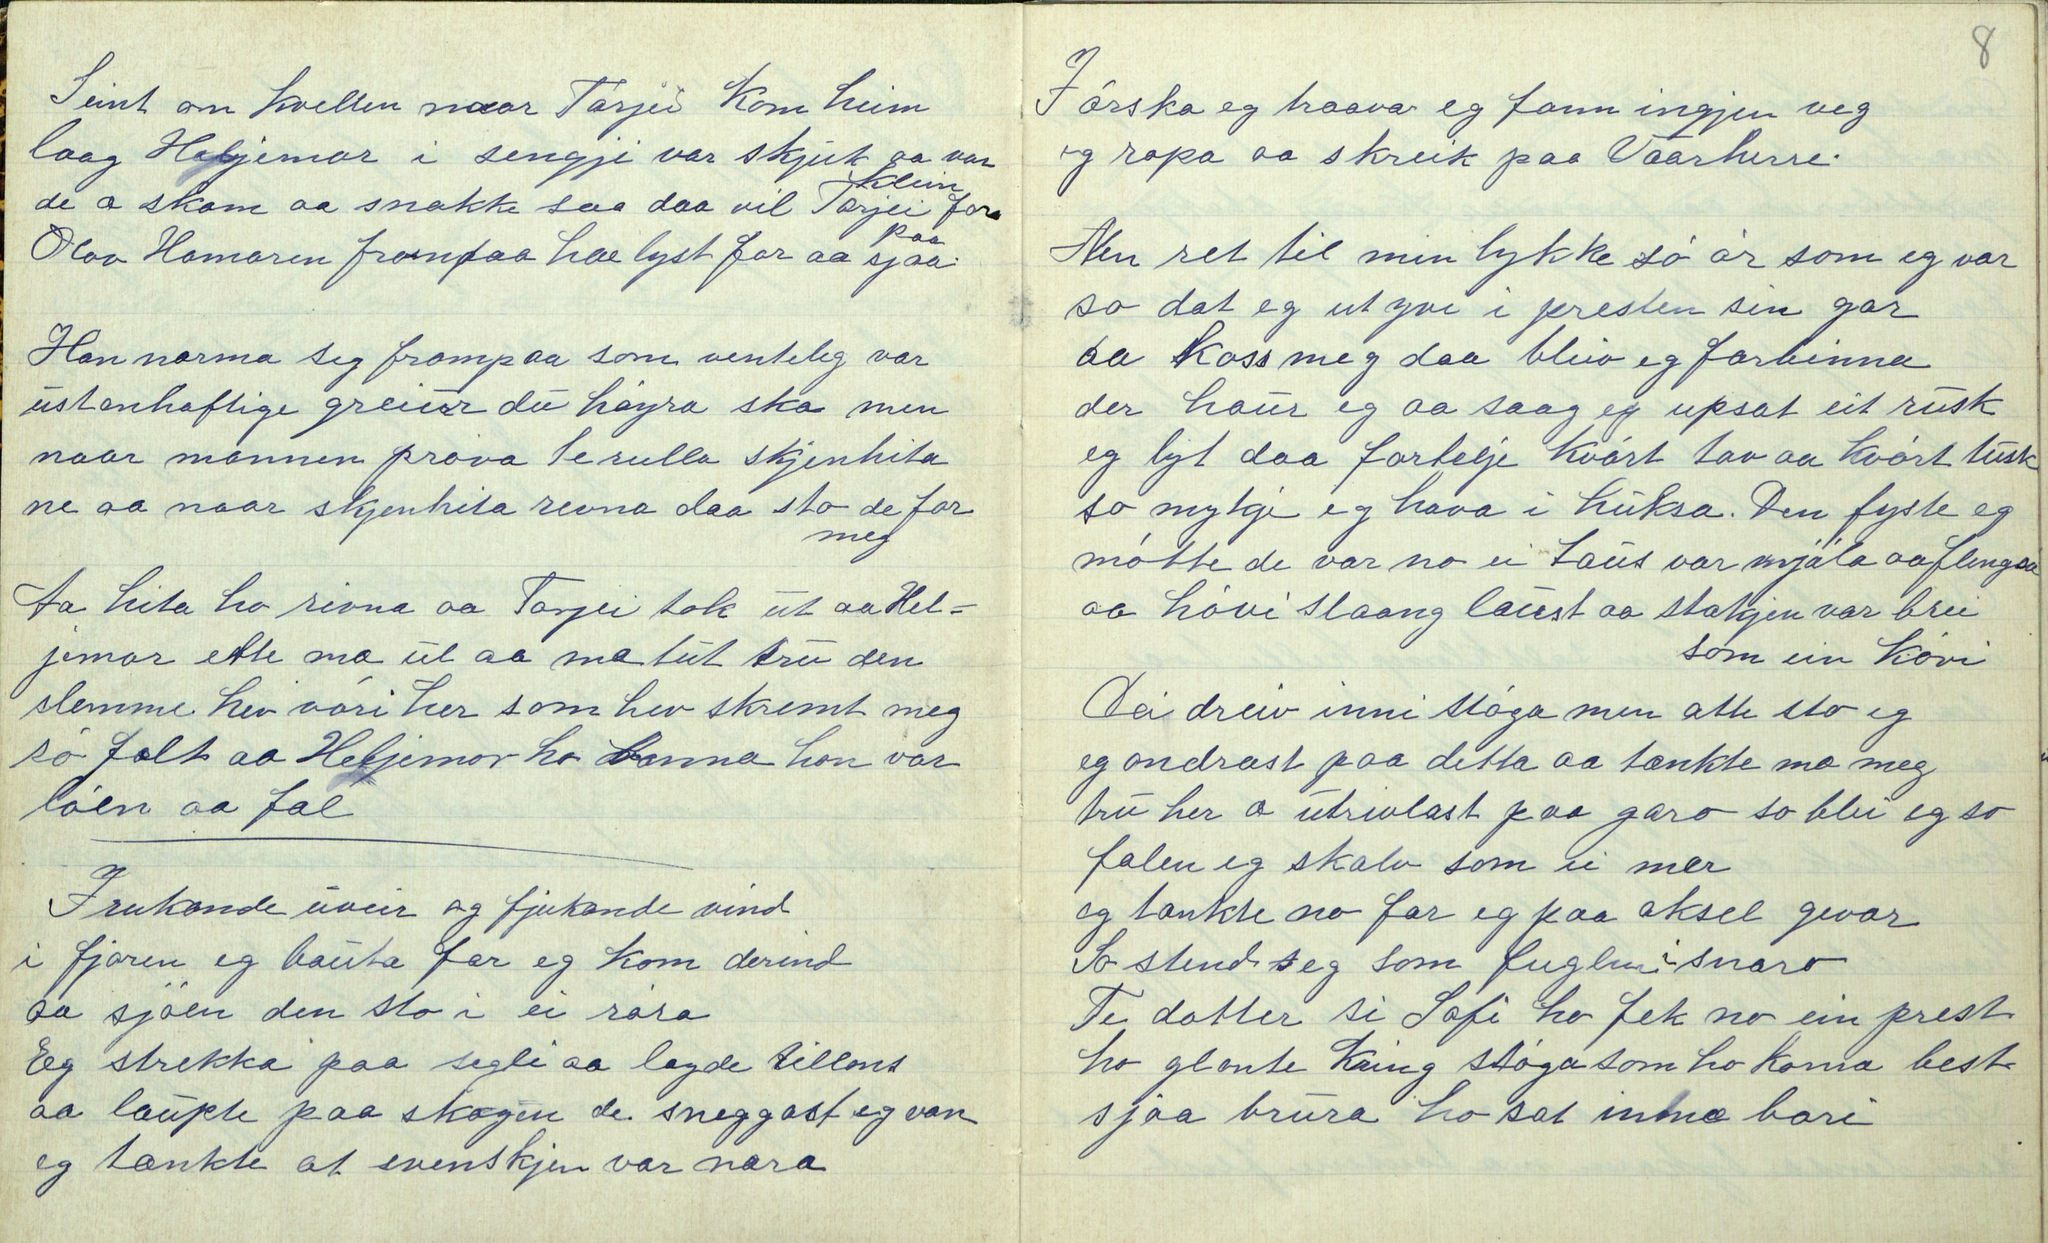 Seint om kvelden naar Tarjei kom heim
laag Heljemor i sengji var skjuk aa var
klein
de æ skam aa snakke saa daa vil Tarjei fara
paa
Olav Hamaren frampaa hæ lyst for aa sjaa.
Han narma seg frampaa som venteleg var
ustanhaftige greiur du höyra ska men
naar mannen pröva te rulla skjenhita
ne aa naar skjenhita revna daa sto de for
meg
Aa hita ho rivna aa Tarjei tok ut aa Hel=
jemor ette mæ ul aa mæ tut tru den
slemme hev vöri her som hev skremt meg
só falt aa Heljemor ho banna han var
löen aa fæl
Frukande üveir og fjukande vind
i fjoren eg bauta før eg kom derind
aa sjöen den sto i ei röra
Eg strekka paa segli aa lagde tillans
aa laupte paa skogin de sneggast eg van
eg tænkte at evenskjen var nære
8
I örska eg traava eg fann ingjen veg
og ropa aa skreik paa Vaarherre.
Men ret til min lykke só ór som eg var
so dat eg ut yvi i presten sin gar
aa koss meg daa bleiv eg forbinna
der haur eg aa saag eg upsat eit rusk
eg lyt daa fortelje kvórt tav aa kvórt tusk
so mykje eg hava i huksa. Den fyste eg
mötte de var no ei taus var mjöla aa flengaa
aa hóvi slaang laust aa stakjen var brei
som ein kövi
Dei dreiv inni stóga men atte sto eg
eg ondrast paa detta aa tænkte mæ meg
tru her æ utrivlast paa garo so blei eg so
fælen eg skalv som ei mær
eg tænkte no fær eg paa aksel gevær
So stend eg som fuglen i snaro
Te dotter si Sofi ho fek no ein prest
ho glante kring stóga som ho kunna best
sjaa brura ho sat innmæ bori